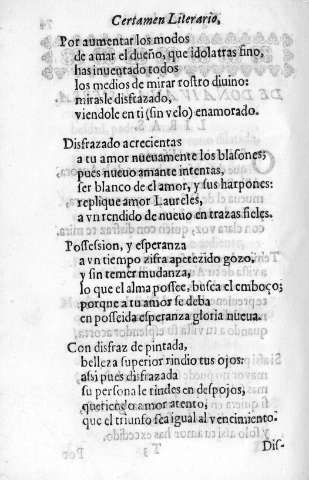 Certamen Literario,
Por aumentar los modos
de amar el dueño, que idolatras fino,
has inuentado todos
los medios de mirar rostro diuino:
mirasle disfrazado,
viendole en ti (sin velo) enamorado.
Disfrazado acrecientas
a tu amor nueuamente los blasones;
pues nueuo amante intentas,
ser blanco de el amor, y sus harpones:
replique amor Laureles,
a vn rendido de nueuo en trazas fieles.
Possession, y esperanza
a vn tiempo zifra apetezido gozo,
y sin temer mudanza,
lo que el alma possee, busca el embozo;
porque a tu amor se deba
en posseida esperanza gloria nueua.
Con disfraz de pintada,
belleza superior rindio tus ojos:
assi pues disfrazada
su persona le rindes en despojos,
queriendo amor atento,
que el triunfo sea igual al vencimiento.
Dis-